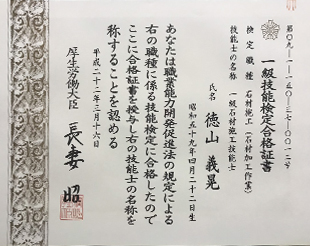 第〇九-一-一五〇-三七-〇〇一二号
一級技能検定合格証書
検定職種 石材施工(石材加工作業)
技能士の名称 一級石材施工技能士
氏名 徳山義晃
昭和五十九年四月二十二日生
あなたは職業能力開発促進法の規定による
右の職種に係る技能検定に合格したので
ここに合格証書を授与し右の技能士の名称を
称することを認める
平成二十二年三月十六日
厚生労働大臣 長妻 昭